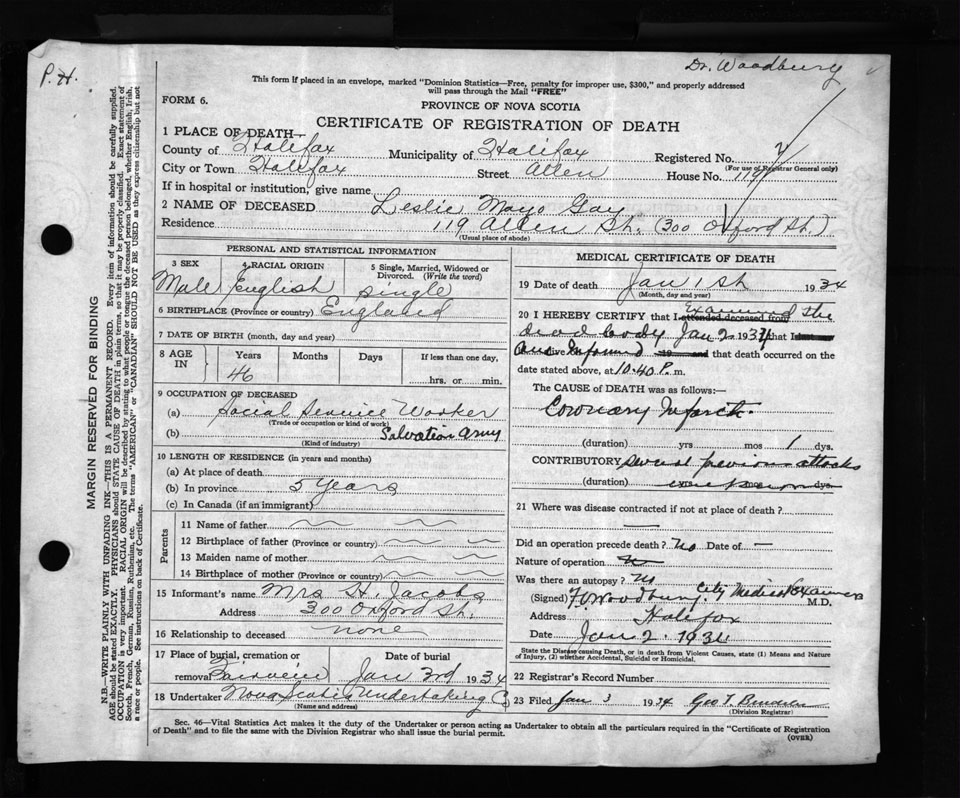 P. H.
Dr. Woodbury
This form if placed in an envelope, marked "Dominion Statistics—Free, penalty for improper use, $300," and properly addressed
will pass through the Mail "FREE"
FORM 6.
PROVINCE OF NOVA SCOTIA
CERTIFICATE OF REGISTRATION OF DEATH
1 PLACE OF DEATH—
County of Halifax Municipality of Halifax Registered No.
(For use of Registrar General only)
City or Town Halifax Street Allen House No. 119
If in hospital or institution, give name
2 NAME OF DECEASED Leslie Mayo Gay
Residence 119 Allen St. (300 Oxford St.)
(Usual place of abode)
PERSONAL AND STATISTICAL INFORMATION
3 SEX Male
4 RACIAL ORIGIN English
5 Single, Married, Widowed or Divorced. (Write the word) single
6 BIRTHPLACE (Province or country) England
7 DATE OF BIRTH (month, day and year)
8 AGE IN Years Months Days If less than one day,
46 hrs. or min.
9 OCCUPATION OF DECEASED
(a) Social Service Worker
(Trade or occupation or kind of work)
(b) Salvation Army
(Kind of industry)
10 LENGTH OF RESIDENCE (in years and months)
(a) At place of death
(b) In province 5 years
(c) In Canada (if an immigrant)
Parents
11 Name of father
12 Birthplace of father (Province or country)
13 Maiden name of mother
14 Birthplace of mother (Province or country)
15 Informant's name Mrs. H. Jacobs
Address 300 Oxford St.
16 Relationship to deceased none
17 Place of burial, cremation or removal Fairview Date of burial Jan 3rd 1934
18 Undertaker Nova Scotia Undertaking Co
(Name and address)
MEDICAL CERTIFICATE OF DEATH
19 Date of death Jan 1st 1934
(Month, day and year)
20 I HEREBY CERTIFY that I attended deceased from Examined the
dead body Jan 2 1934 that I
alive Informed 19 and that death occurred on the
date stated above, at 10.40 P. m.
The CAUSE of DEATH was as follows:—
Coronary Infarct.
(duration) yrs mos 1 dys.
CONTRIBUTORY Several previous attacks
(duration) dys
21 Where was disease contracted if not at place of death?
Did an operation precede death? No Date of —
Nature of operation
Was there an autopsy? No
(Signed) F. Woodbury. City Medical Examiner M.D.
Address Halifax
Date Jan 2. 1934
State the Disease causing Death, or in death from Violent Causes, state (1) Means and Nature
of Injury, (2) whether Accidental, Suicidal or Homicidal.
22 Registrar's Record Number
23 Filed Jan 3 1934 Geo T.
(Division Registrar)
Sec. 46—Vital Statistics Act makes it the duty of the Undertaker or person acting as Undertaker to obtain all the particulars required in the "Certificate of Registration
of Death" and to file the same with the Division Registrar who shall issue the burial permit.
(OVER)
MARGIN RESERVED FOR BINDING
N.B.—WRITE PLAINLY WITH UNFADING INK—THIS IS A PERMANENT RECORD. Every item of information should be carefully supplied.
AGE should be stated EXACTLY. PHYSICIANS should STATE CAUSE OF DEATH in plain terms, so that it may be properly classified. Exact statement of
OCCUPATION is very important. RACIAL ORIGIN will be described by stating to what people or tongue the deceased person belonged, whether English, Irish,
Scotch, French, German, Russian, Ruthenian, etc. The terms "AMERICAN" or "CANADIAN" SHOULD NOT BE USED as they express citizenship but not
a race or people. See instructions on back of Certificate.